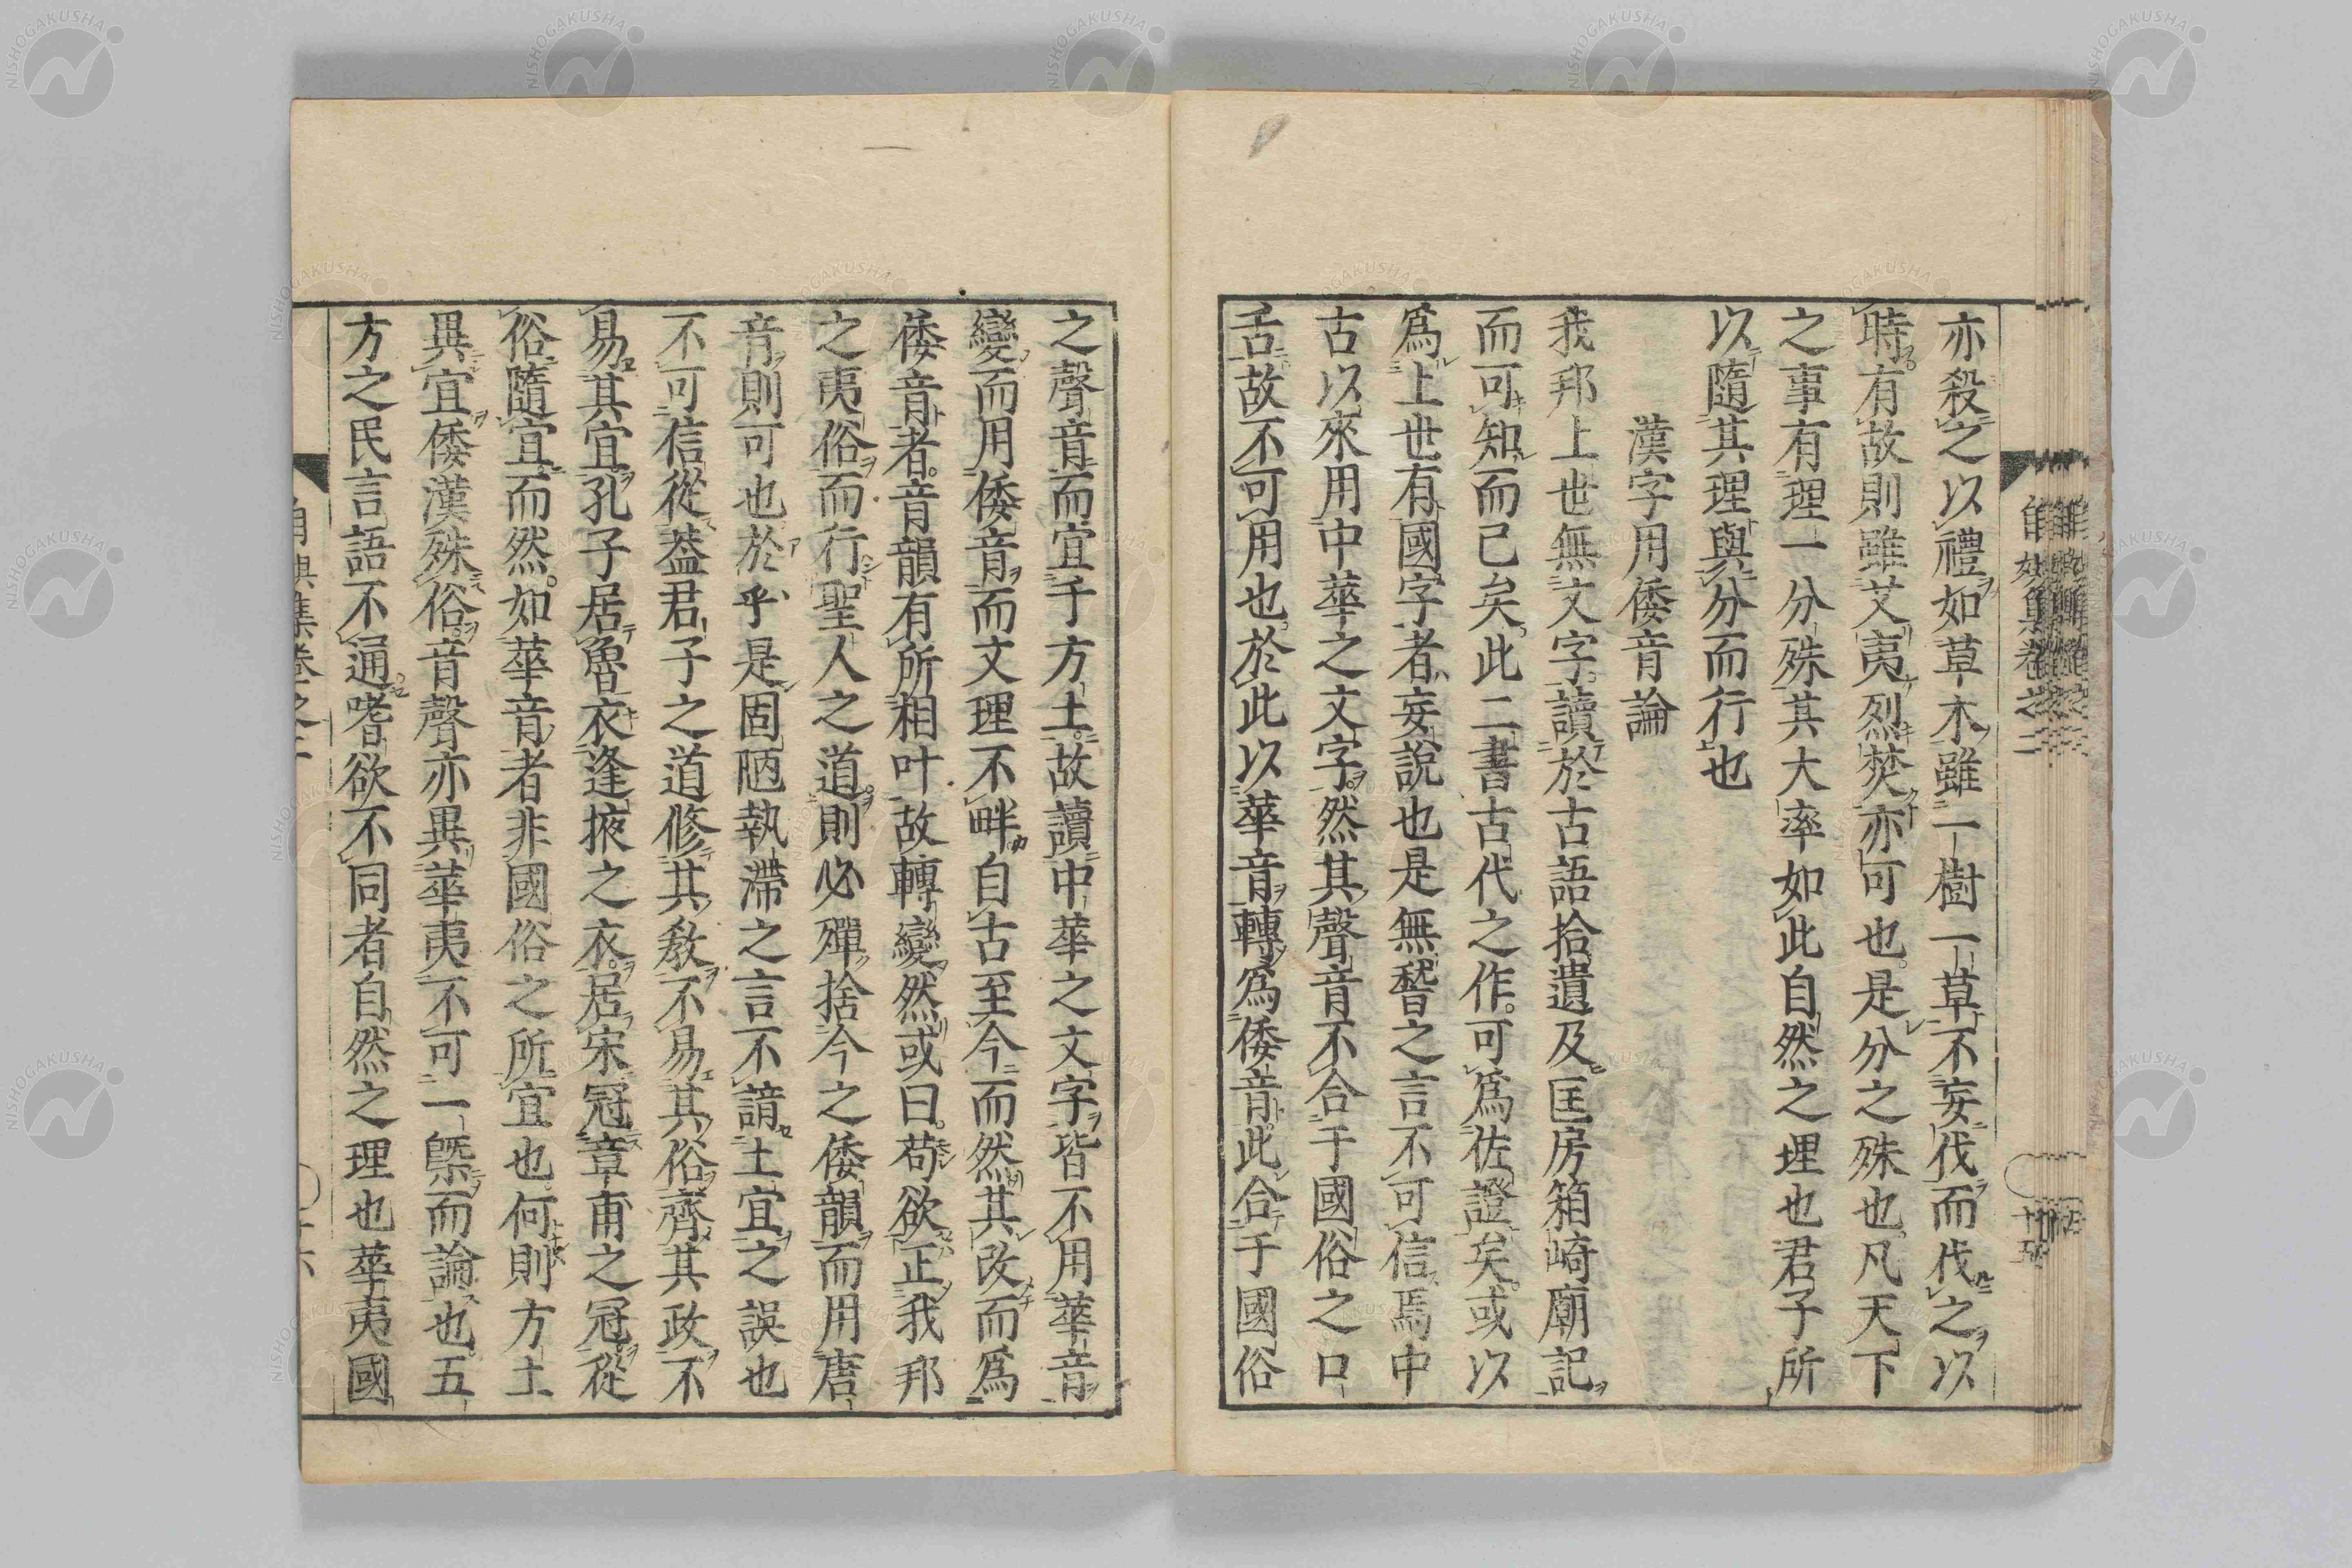 亦殺之以禮如草木雖一樹一草不妄伐而伐之以
時有故則雖艾夷烈焚亦可也是分之殊也凡天下
之事有理一分殊其大率如此自然之理也君子所
以隨其理與分而行也
漢字用倭音論
我邦上世無文字讀於古語拾遺及匡房箱崎廟記
而可知而已矣此二書古代之作可爲佐證矣或以
爲上世有國字者妄說也是無稽之言不可信焉中
古以來用中華之文字然其聲音不合于國俗之口
舌故不可用也於此以華音轉爲倭音此合于國俗
之聲音而宜于方土故讀中華之文字皆不用華音
變而用倭音而文理不畔自古至今而然其改而爲
倭音者音韻有所相叶故轉變然或曰苟欲正我邦
之夷俗而行聖人之道則必殫捨今之倭韻而用唐
音則可也於乎是固陋執滯之言不諳土宜之誤也
不可信從蓋君子之道修其敎不易其俗齊其政不
易其宜孔子居魯衣逢掖之衣居宋冠章甫之冠從
俗隨宜而然如華音者非國俗之所宜也何則方土
異宜倭漢殊俗音聲亦異華夷不可一槩而論也五
方之民言語不通嗜欲不同者自然之理也華夷國
自娛集卷之二
NISHOGAKUSHA